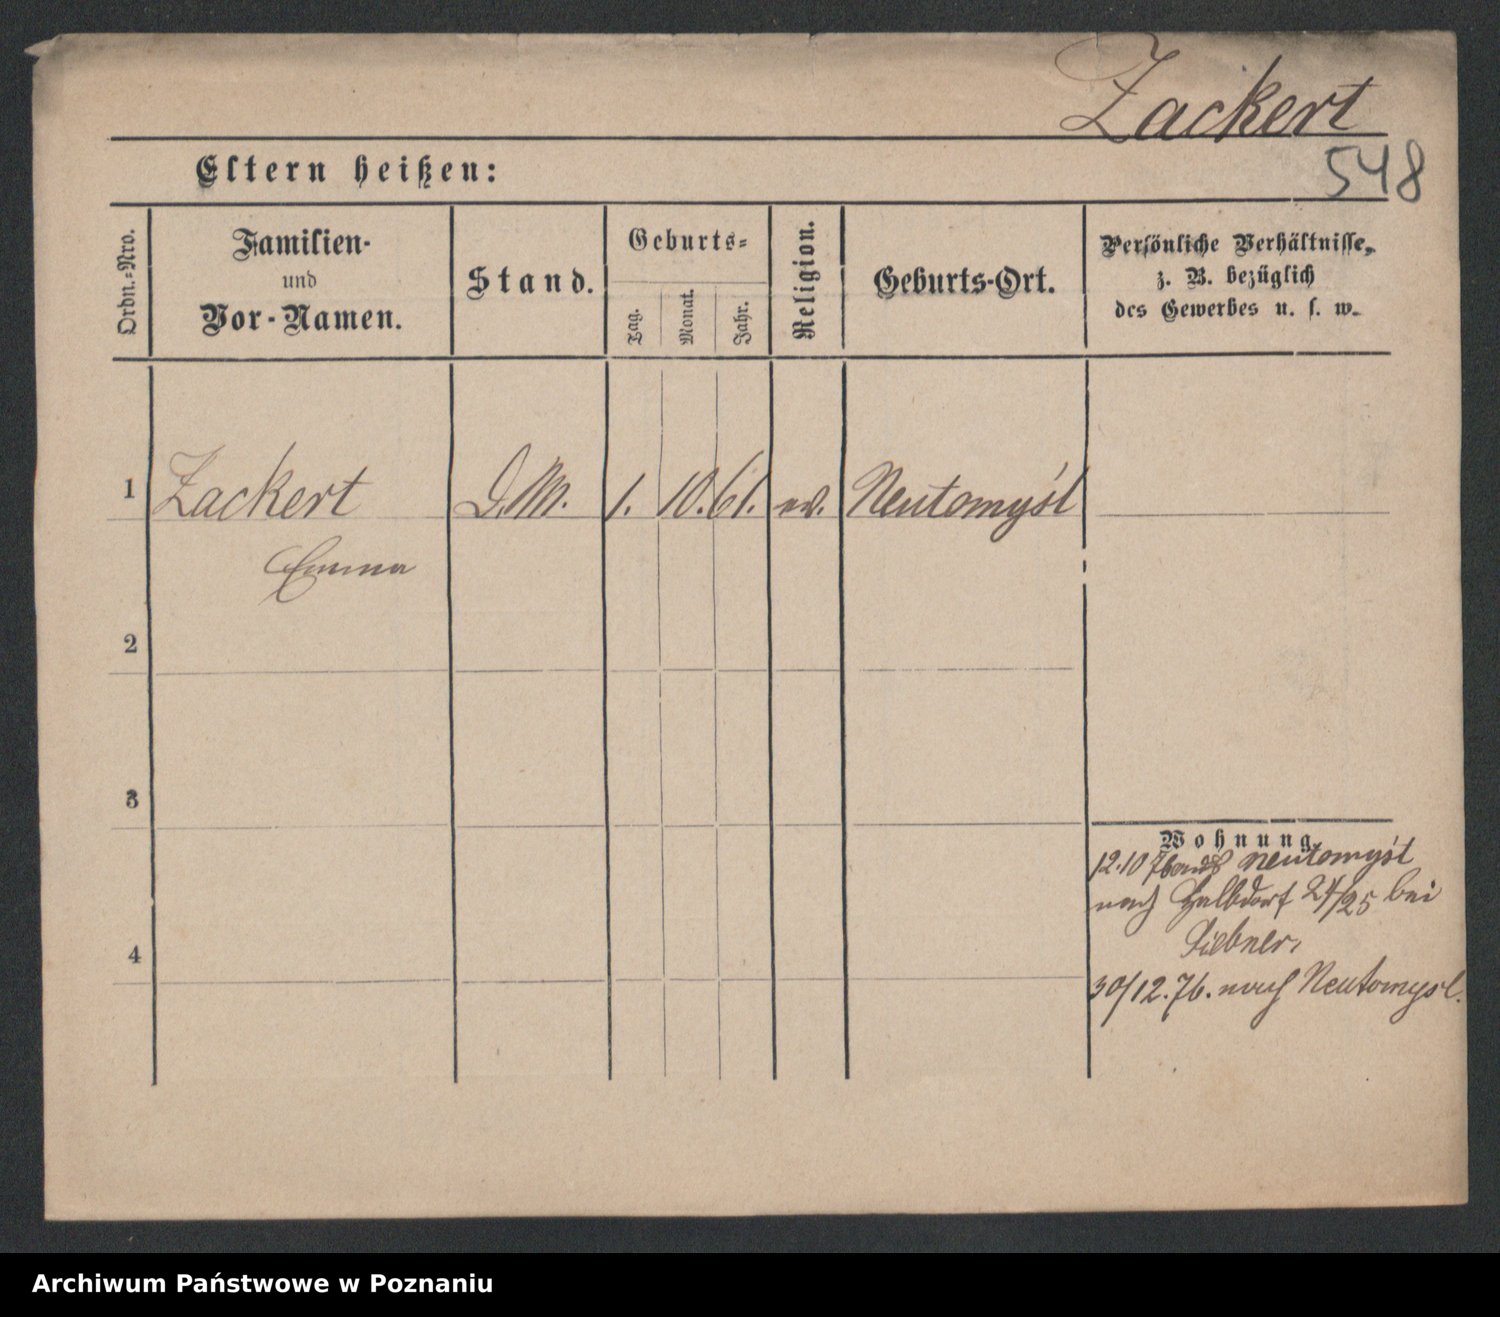 Zackert
548
Eltern heißen:
Ordn.=Nro.
Familien-
und
Vor-Namen.
Stand.
Geburts=
Tag.
Monat.
Jahr.
Religion.
Geburts-Ort.
Persönliche Verhältnisse,
z. B. bezüglich
des Gewerbes u. s. w.
1 Zackert D. M. 1. 10. 61. ev. Neutomyśl
Emma
2
3
4
Wohnung
12.10 76 aus Neutomyśl
nach Halbdorf 24/25 bei
30/12.76. nach Neutomysl.
Archiwum Państwowe w Poznaniu